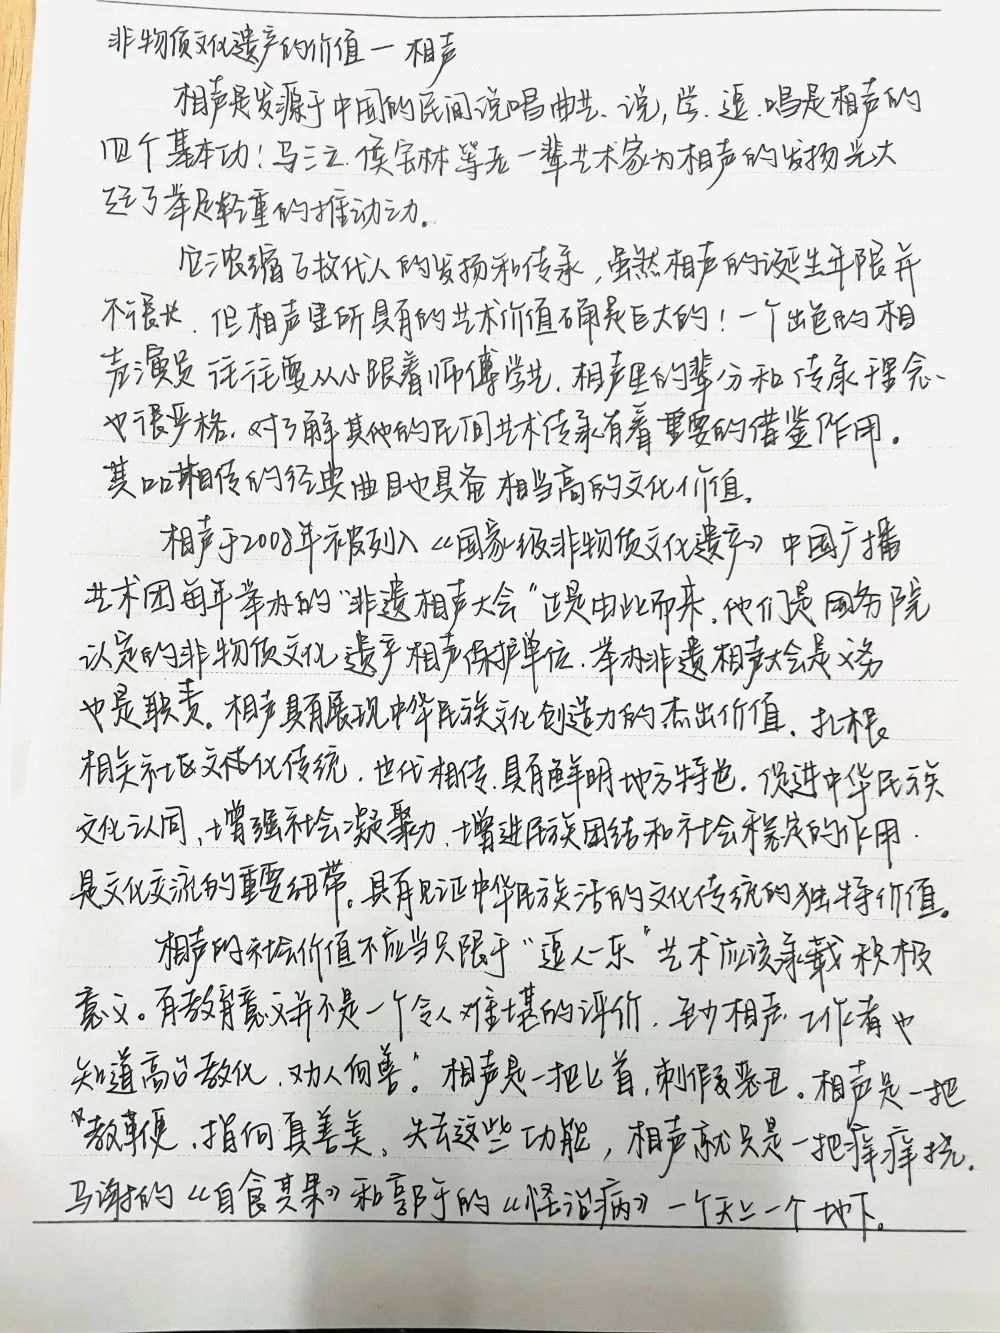 非物质文化遗产的价值一相声
相声是发源于中国的民间说唱曲艺、说,学.逗.唱是相声的
四个基本功!马三立.侯宝林等老一辈艺术家为相声的发扬光大
起了举足轻重的推动力。
它浓缩了故代人的发扬和传承,虽然相声的诞生年限并
不很长.但相声里所具有的艺术价值确是巨大的!一个出色的相
声演员往往要从小跟着师傅学艺.相声里的辈分和传承理念、
也很严格.对了解其他的民间艺术传承有着重要的借鉴作用。
其口口相传的经典曲目也具备相当高的文化价值.
相声于2008年被列入《国家级非物质文化遗产》中国广播
艺术团每年举办的"非遗相声大会"也是由此而来.他们是国务院
认定的非物质文化遗产相声保护单位.举办非遗相声大会是义务
也是职责.相声具有展现中华民族文化创造力的杰出价值.扎根
相关社区文化传统.世代相传.具有鲜明地方特色.促进中华民族
文化认同,增强社会凝聚力.增进民族团结和社会稳定的作用.
是文化交流的重要纽带。具有见证中华民族活的文化传统的独特价值。
相声的社会价值不应当只限于"逗人一乐"艺术应该承载积极
意义。有教育意义并不是一个令人难堪的评价.至少相声工作者也
知道高台教化、劝人向善"。相声是一把匕首,刺假恶丑。相声是一把
"教鞭.指向真善美、失去这些功能,相声就只是一把痒痒挠.
马谢的《自食其果》和郭于的《怪治病》一个天上一个地下。